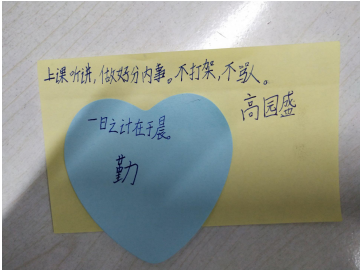 上课听讲,做好分内事。不打架,不骂人。
高园盛
一日之计在于晨。
勤力